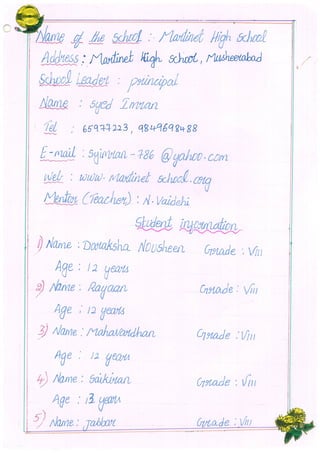 Name of the school : Martinet High school
Address : Martinet High school, Musheerabad
School Leader : principal
Name : Syed Imran
Tel : 65977223, 9849698488
E-mail : syimran-786 @yahoo.com
Web : www.Martinet school.org
Mentor (Teacher) : N. Vaidehi
Student information
1) Name : Daraksha Nousheen Grade : VIII
Age : 12 years
2) Name : Rayaan Grade : VIII
Age : 12 years
3) Name : Mahavardhan Grade : VIII
Age : 12 years
4) Name : Saikiran Grade : VIII
Age : 13 years
5) Name : jabbar Grade : VIII